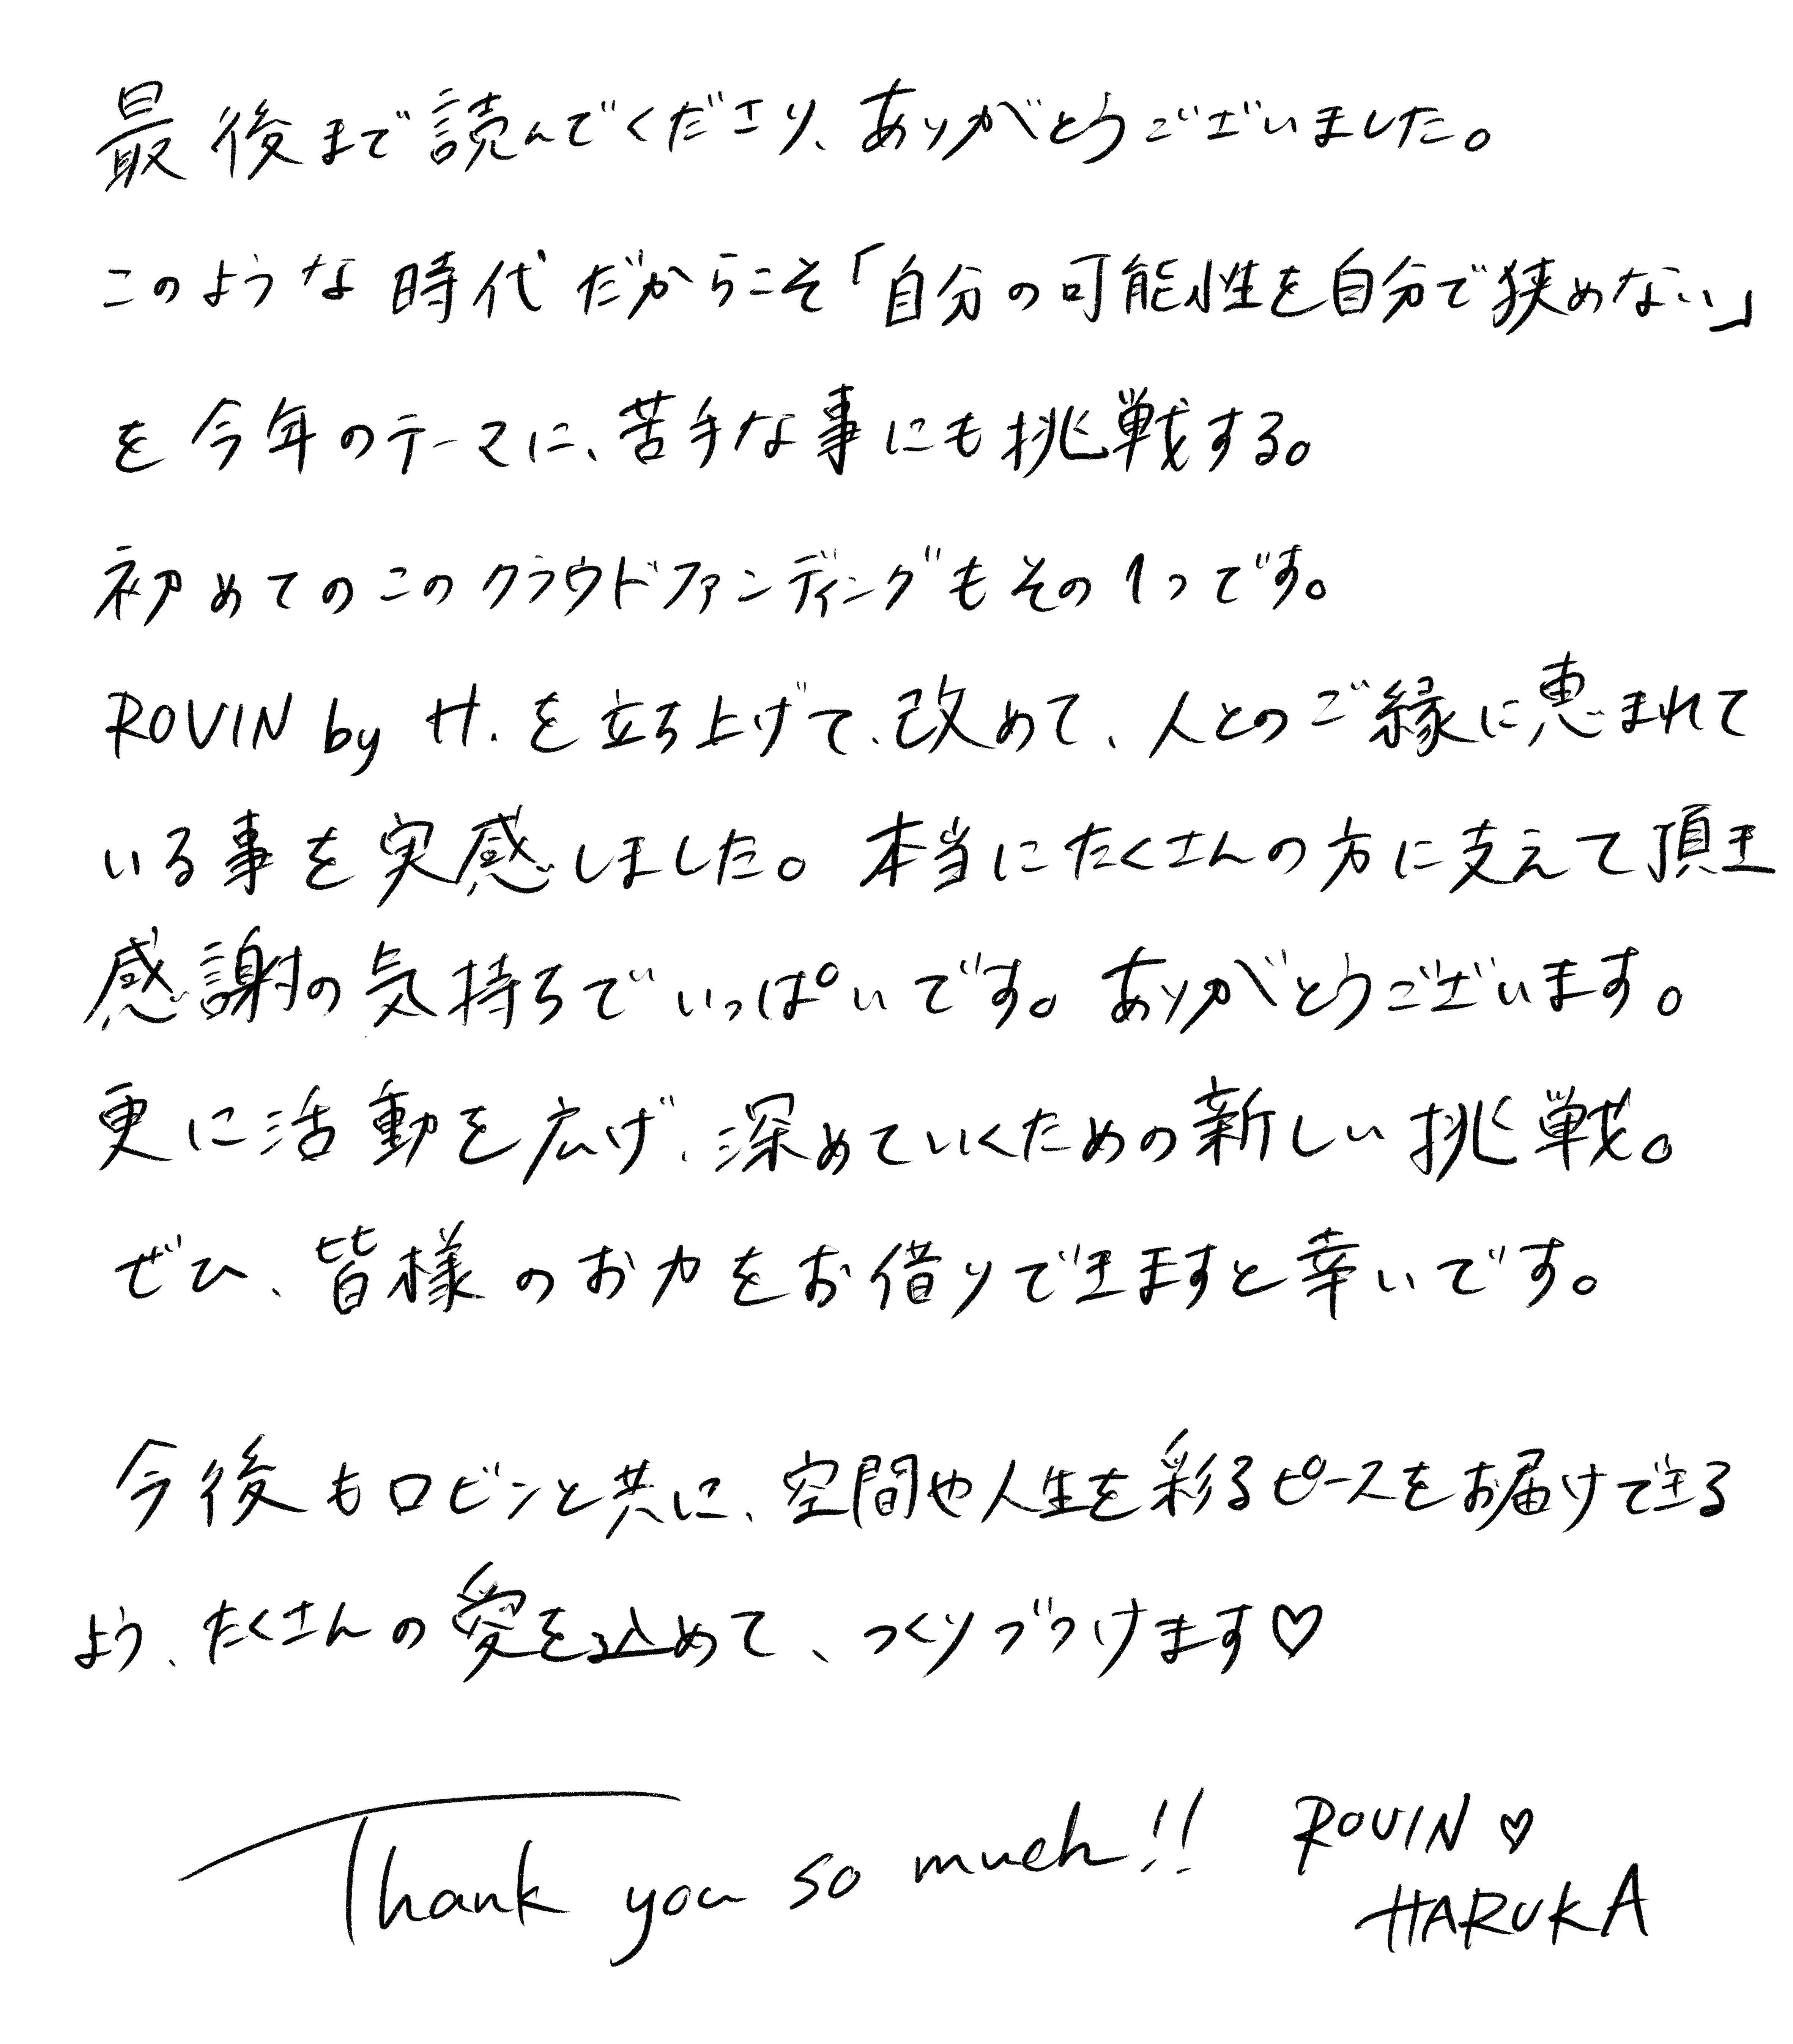 最後まで読んでくださり、ありがとうございました。
このような時代だからこそ「自分の可能性を自分で狭めない」
を今年のテーマに、苦手な事にも挑戦する。
初めてのこのクラウドファンディングもその1つです。
ROVIN by H. を立ち上げて、改めて、人とのご縁に恵まれて
いる事を実感しました。本当にたくさんの方に支えて頂き
感謝の気持ちでいっぱいです。ありがとうございます。
更に活動を広げ、深めていくための新しい挑戦。
ぜひ、皆様のお力をお借りできますと幸いです。
今後もロビンと共に、空間や人生を彩るピースをお届けできる
よう、たくさんの愛を込めて、つくりづつけます♡
Thank you so much!!
ROVIN ♡
HARUKA